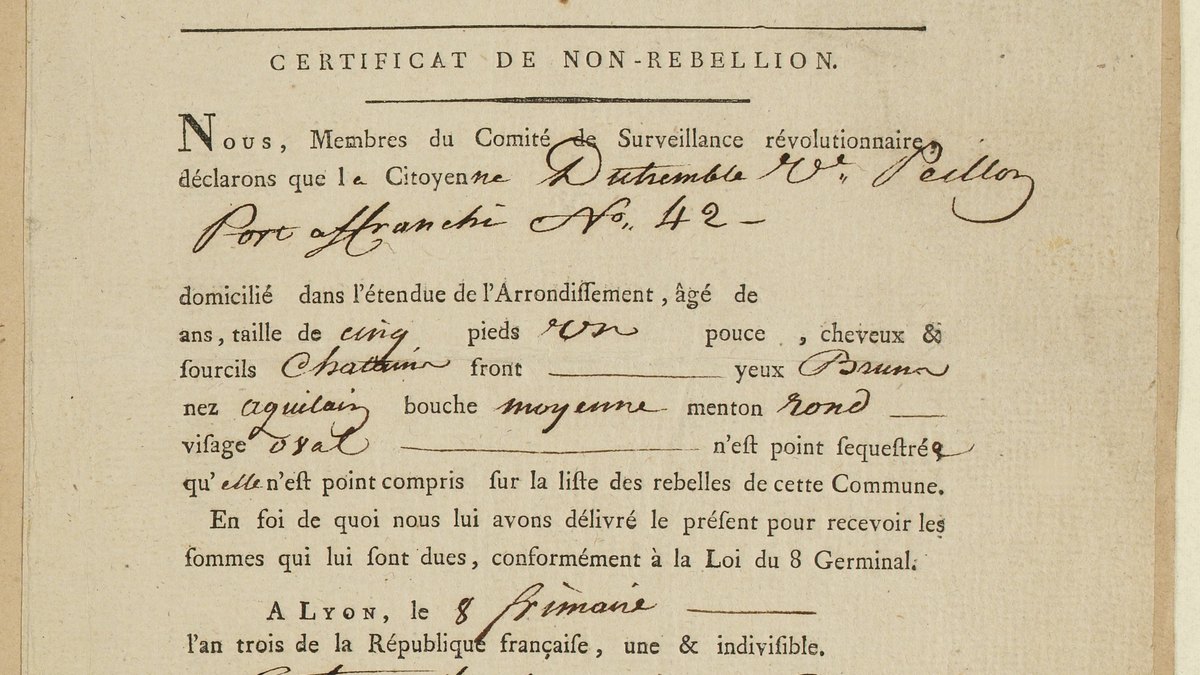 CERTIFICAT DE NON-REBELLION.
NOUS, Membres du Comité de Surveillance révolutionnaire,
déclarons que la Citoyenne Dutremble Ve. Paillon
Port affranchi No. 42 —
domicilié dans l'étendue de l'Arrondiſſement, âgé de
ans, taille de cinq pieds un pouce , cheveux &
ſourcils Chattain front — yeux Bruns
nez aquilain bouche moyenne menton rond —
viſage oval — n'eſt point ſequeſtrée
qu'elle n'eſt point compris ſur la liſte des rebelles de cette Commune.
En foi de quoi nous lui avons délivré le préſent pour recevoir les
ſommes qui lui ſont dues, conformément à la Loi du 8 Germinal.
A LYON, le 8 frimaire —
l'an trois de la République françaiſe, une & indiviſible.